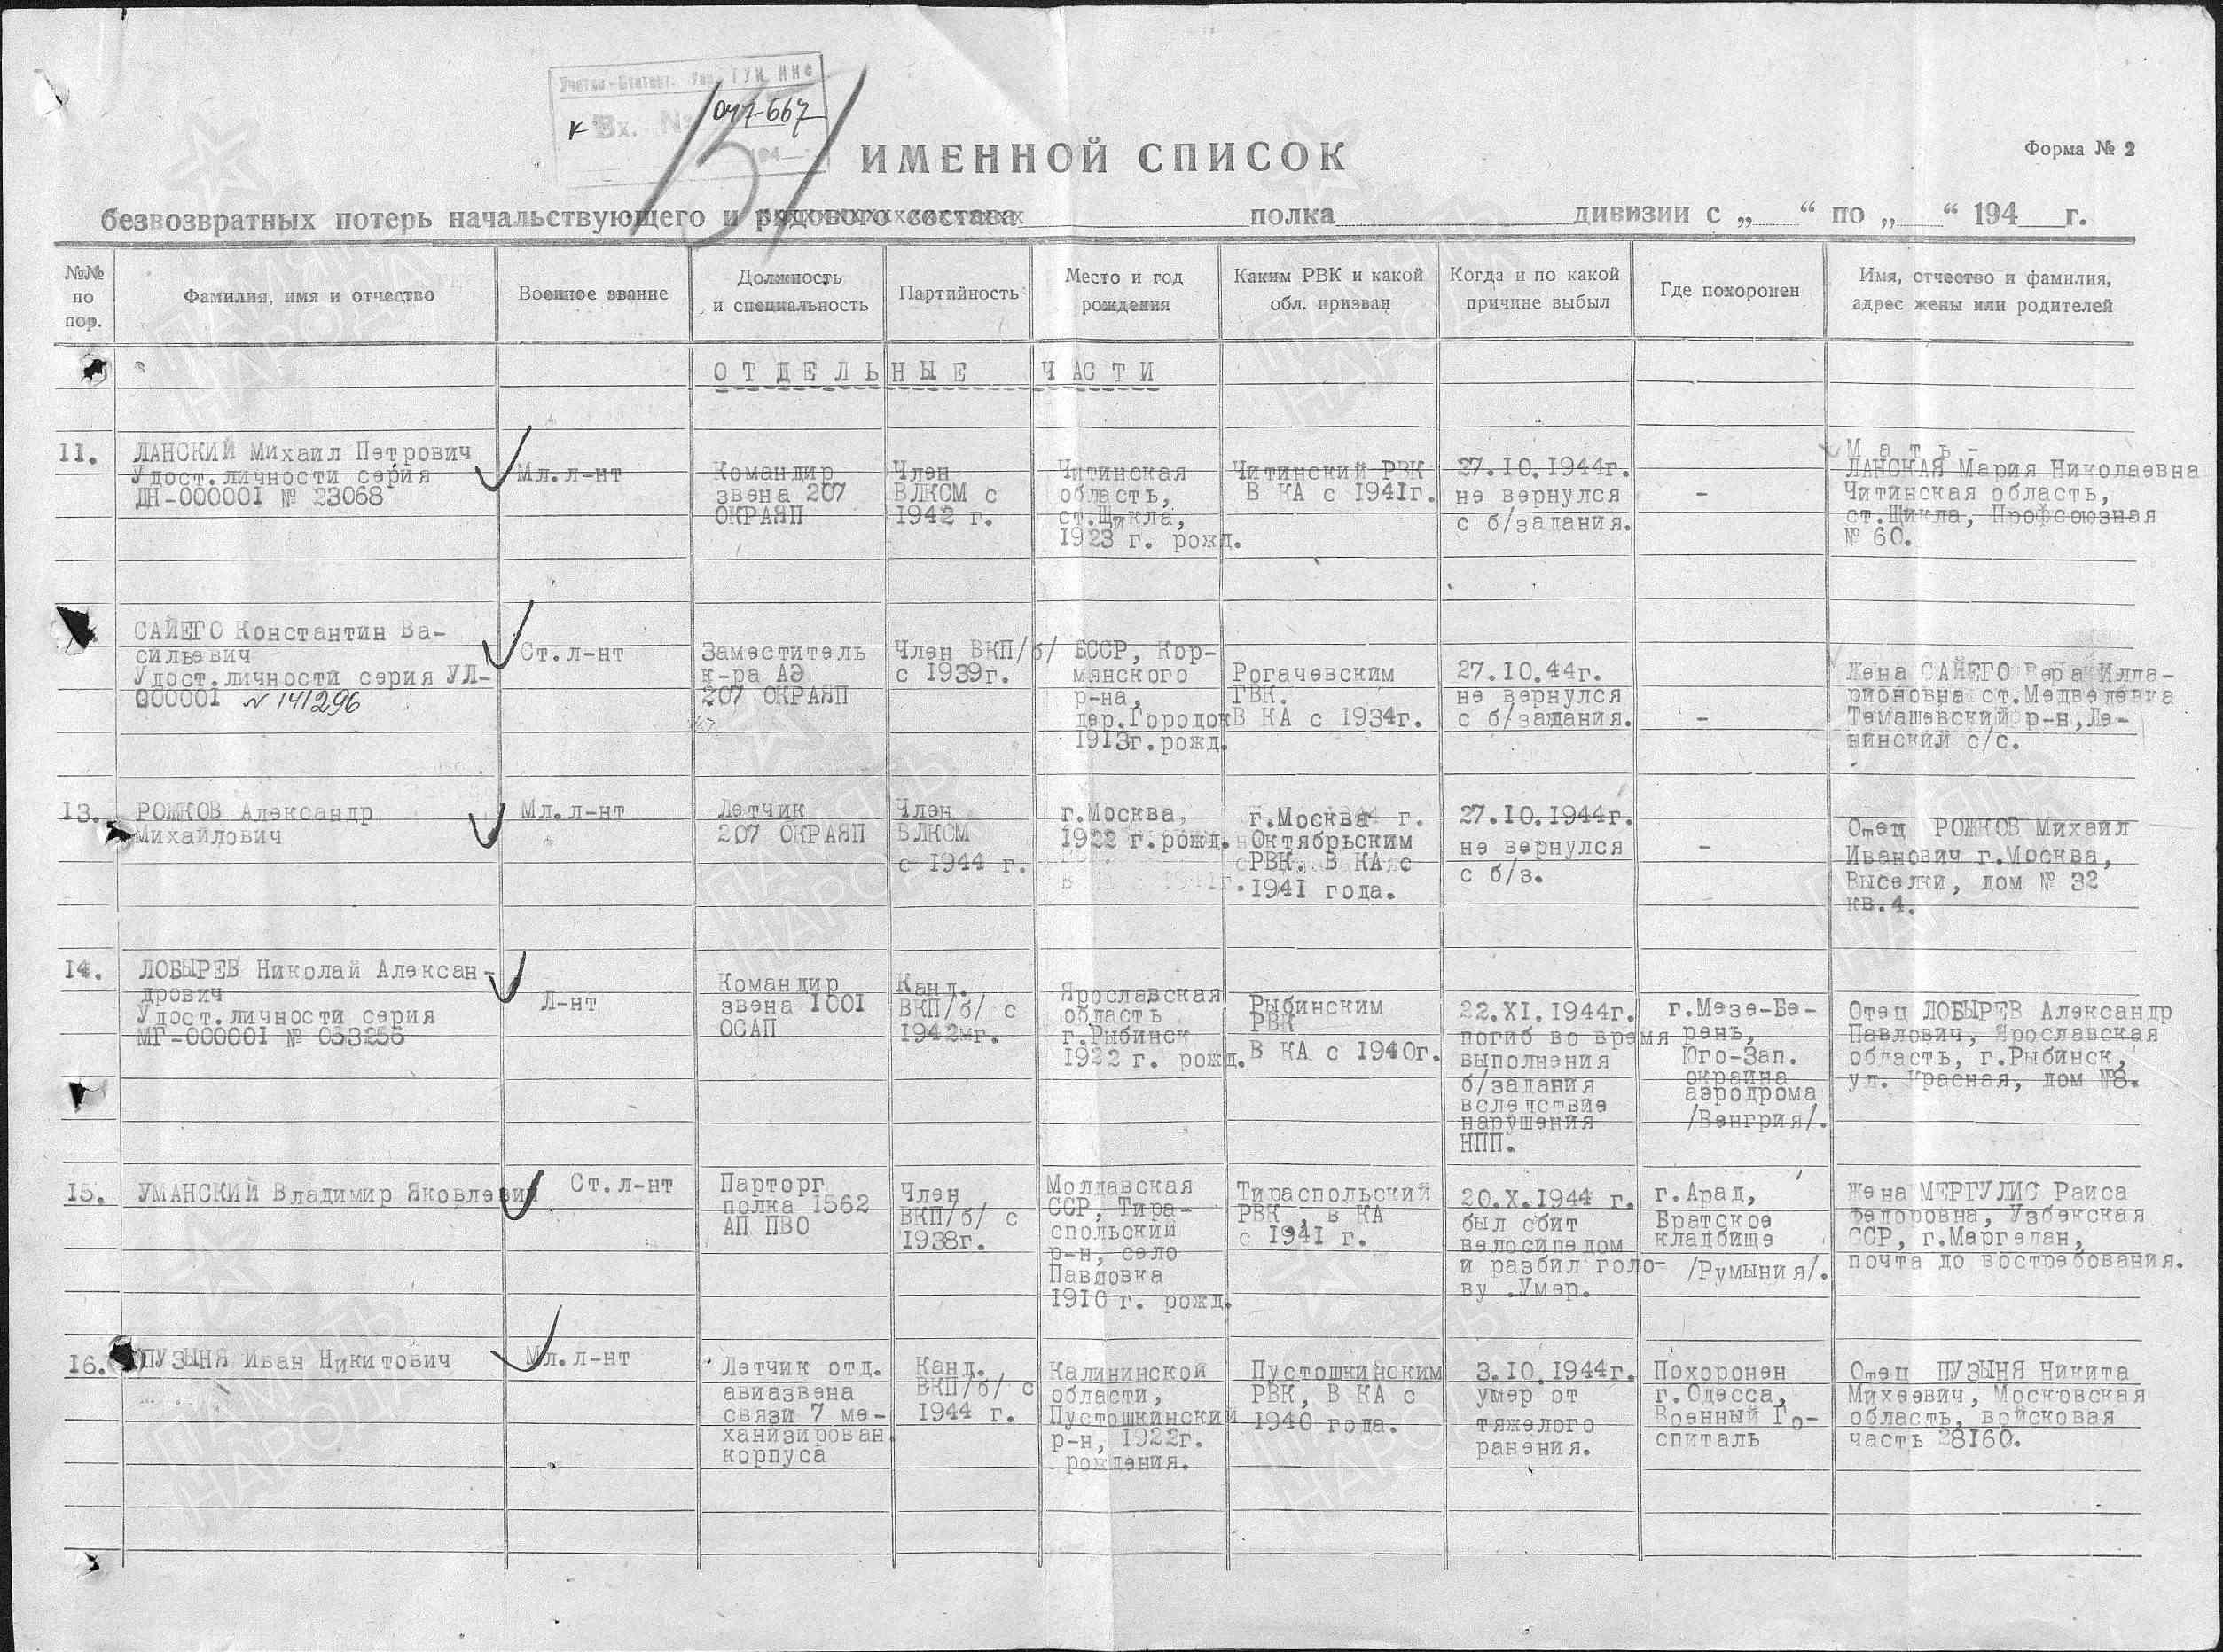 Вх. №
к 047-667
194
ИМЕННОЙ СПИСОК
Форма № 2
безвозвратных потерь начальствующего и рядового состава полка дивизии с „ “ по „ “ 194 г.
№№
по
пор.
Фамилия, имя и отчество
Военное звание
Должность
и специальность
Партийность
Место и год
рождения
Каким РВК и какой
обл. призван
Когда и по какой
причине выбыл
Где похоронен
Имя, отчество и фамилия,
адрес жены или родителей
ОТДЕЛЬНЫЕ ЧАСТИ
11.
ЛАНСКИЙ Михаил Петрович
Удост.личности серия
ДН-000001 № 23068
Мл.л-нт
Командир
звена 207
ОКРАЯП
Член
ВЛКСМ с
1942 г.
Читинская
область,
ст.Щикла,
1923 г. рожд.
Читинский РВК
В КА с 1941г.
27.10.1944г.
не вернулся
с б/задания.
-
Мать -
ЛАНСКАЯ Мария Николаевна
Читинская область,
ст.Щикла, Профсоюзная
№ 60.
САЙЕГО Константин Ва-
сильевич
Удост.личности серия УЛ-
000001 № 141296
Ст.л-нт
Заместитель
к-ра АЭ
207 ОКРАЯП
Член ВКП/б/
с 1939г.
БССР, Кор-
мянского
р-на,
дер.Городок
1913г.рожд.
Рогачевским
ГВК.
В КА с 1934г.
27.10.44г.
не вернулся
с б/задания.
-
Жена САЙЕГО Вера Илла-
рионовна ст.Медведевка
Темашевский р-н,Ле-
нинский с/с.
13.
РОЖКОВ Александр
Михайлович
Мл.л-нт
Летчик
207 ОКРАЯП
Член
ВЛКСМ
с 1944 г.
г.Москва,
1922 г.рожд.
г.Москва
Октябрьским
РВК. В КА с
1941 года.
27.10.1944г.
не вернулся
с б/з.
-
Отец РОЖКОВ Михаил
Иванович г.Москва,
Выселки, дом № 32
кв.4.
14.
ЛОБЫРЕВ Николай Алексан-
дрович
Удост.личности серия
МГ-000001 № 053256
Л-нт
Командир
звена 1001
ОСАП
Канд.
ВКП/б/ с
1942мг.
Ярославская
область
г.Рыбинск
1922 г. рожд.
Рыбинским
РВК
В КА с 1940г.
22.XI.1944г.
погиб во время
выполнения
б/задания
вследствие
нарушения
НПП.
г.Мезе-Бе-
рень,
Юго-Зап.
окраина
аэродрома
/Венгрия/.
Отец ЛОБЫРЕВ Александр
Павлович, Ярославская
область, г.Рыбинск,
ул. Красная, дом №8.
15.
УМАНСКИЙ Владимир Яковлевич
Ст.л-нт
Парторг
полка 1562
АП ПВО
Член
ВКП/б/ с
1938г.
Молдавская
ССР, Тира-
спольский
р-н, село
Павловка
1910 г. рожд.
Тираспольский
РВК , в КА
с 1941 г.
20.X.1944 г.
был сбит
велосипедом
и разбил голо-
ву .Умер.
г.Арад,
Братское
кладбище
/Румыния/.
Жена МЕРГУЛИС Раиса
Федоровна, Узбекская
ССР, г.Маргелан,
почта до востребования.
16.
ПУЗЫНЯ Иван Никитович
Мл.л-нт
Летчик отд.
авиазвена
связи 7 ме-
ханизирован.
корпуса
Канд.
ВКП/б/ с
1944 г.
Калининской
области,
Пустошкинский
р-н, 1922г.
рождения.
Пустошкинским
РВК, В КА с
1940 года.
3.10.1944г.
умер от
тяжелого
ранения.
Похоронен
г.Одесса,
Военный Го-
спиталь
Отец ПУЗЫНЯ Никита
Михеевич, Московская
область, войсковая
часть 28160.